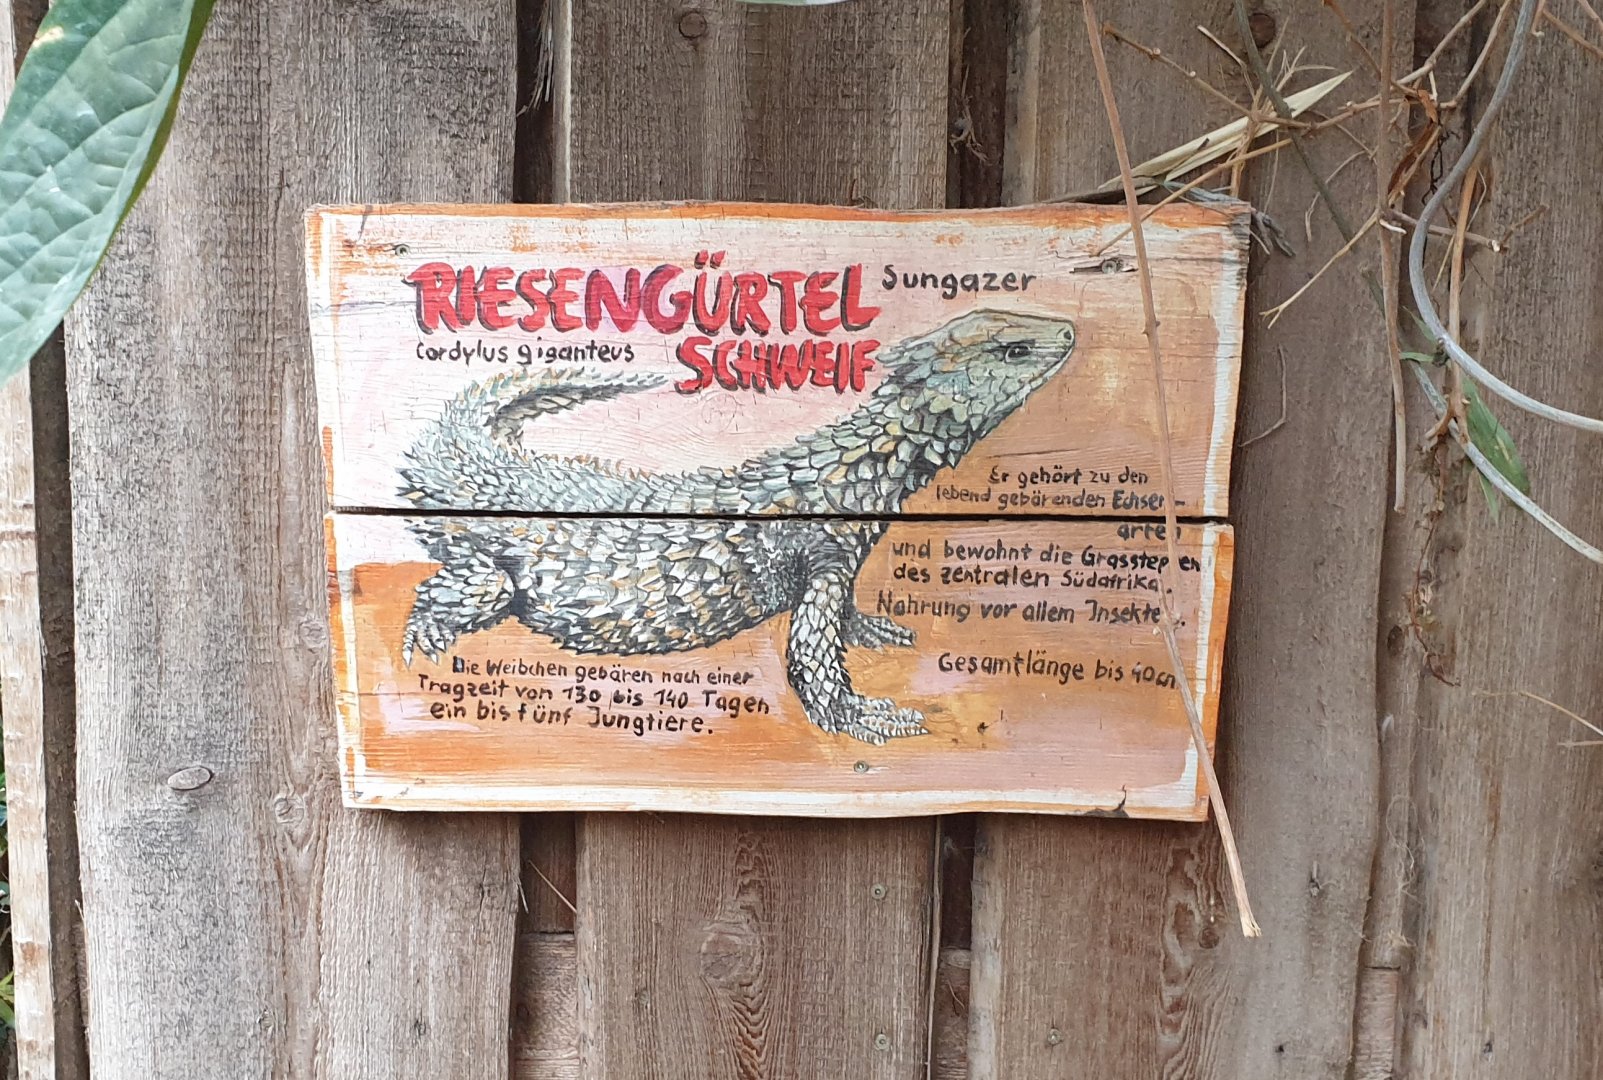 RIESENGÜRTEL
SCHWEIF
Sungazer
Cordylus giganteus
Er gehört zu den
lebend gebärenden Echsen-
arten
und bewohnt die Grassteppen
des zentralen Südafrika.
Nahrung vor allem Insekten.
Gesamtlänge bis 40cm
Die Weibchen gebären nach einer
Tragzeit von 130 bis 140 Tagen
ein bis fünf Jungtiere.